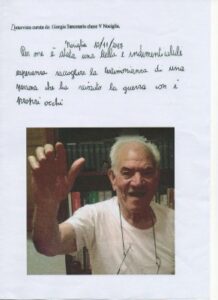 Intervista curata da: Giorgio Tamborrino classe V Nociglia.
Nociglia 12/11/2013
Per me è stata una bella e indimenticabile
esperienza raccogliere la testimonianza di una
persona che ha vissuto la guerra con i
propri occhi